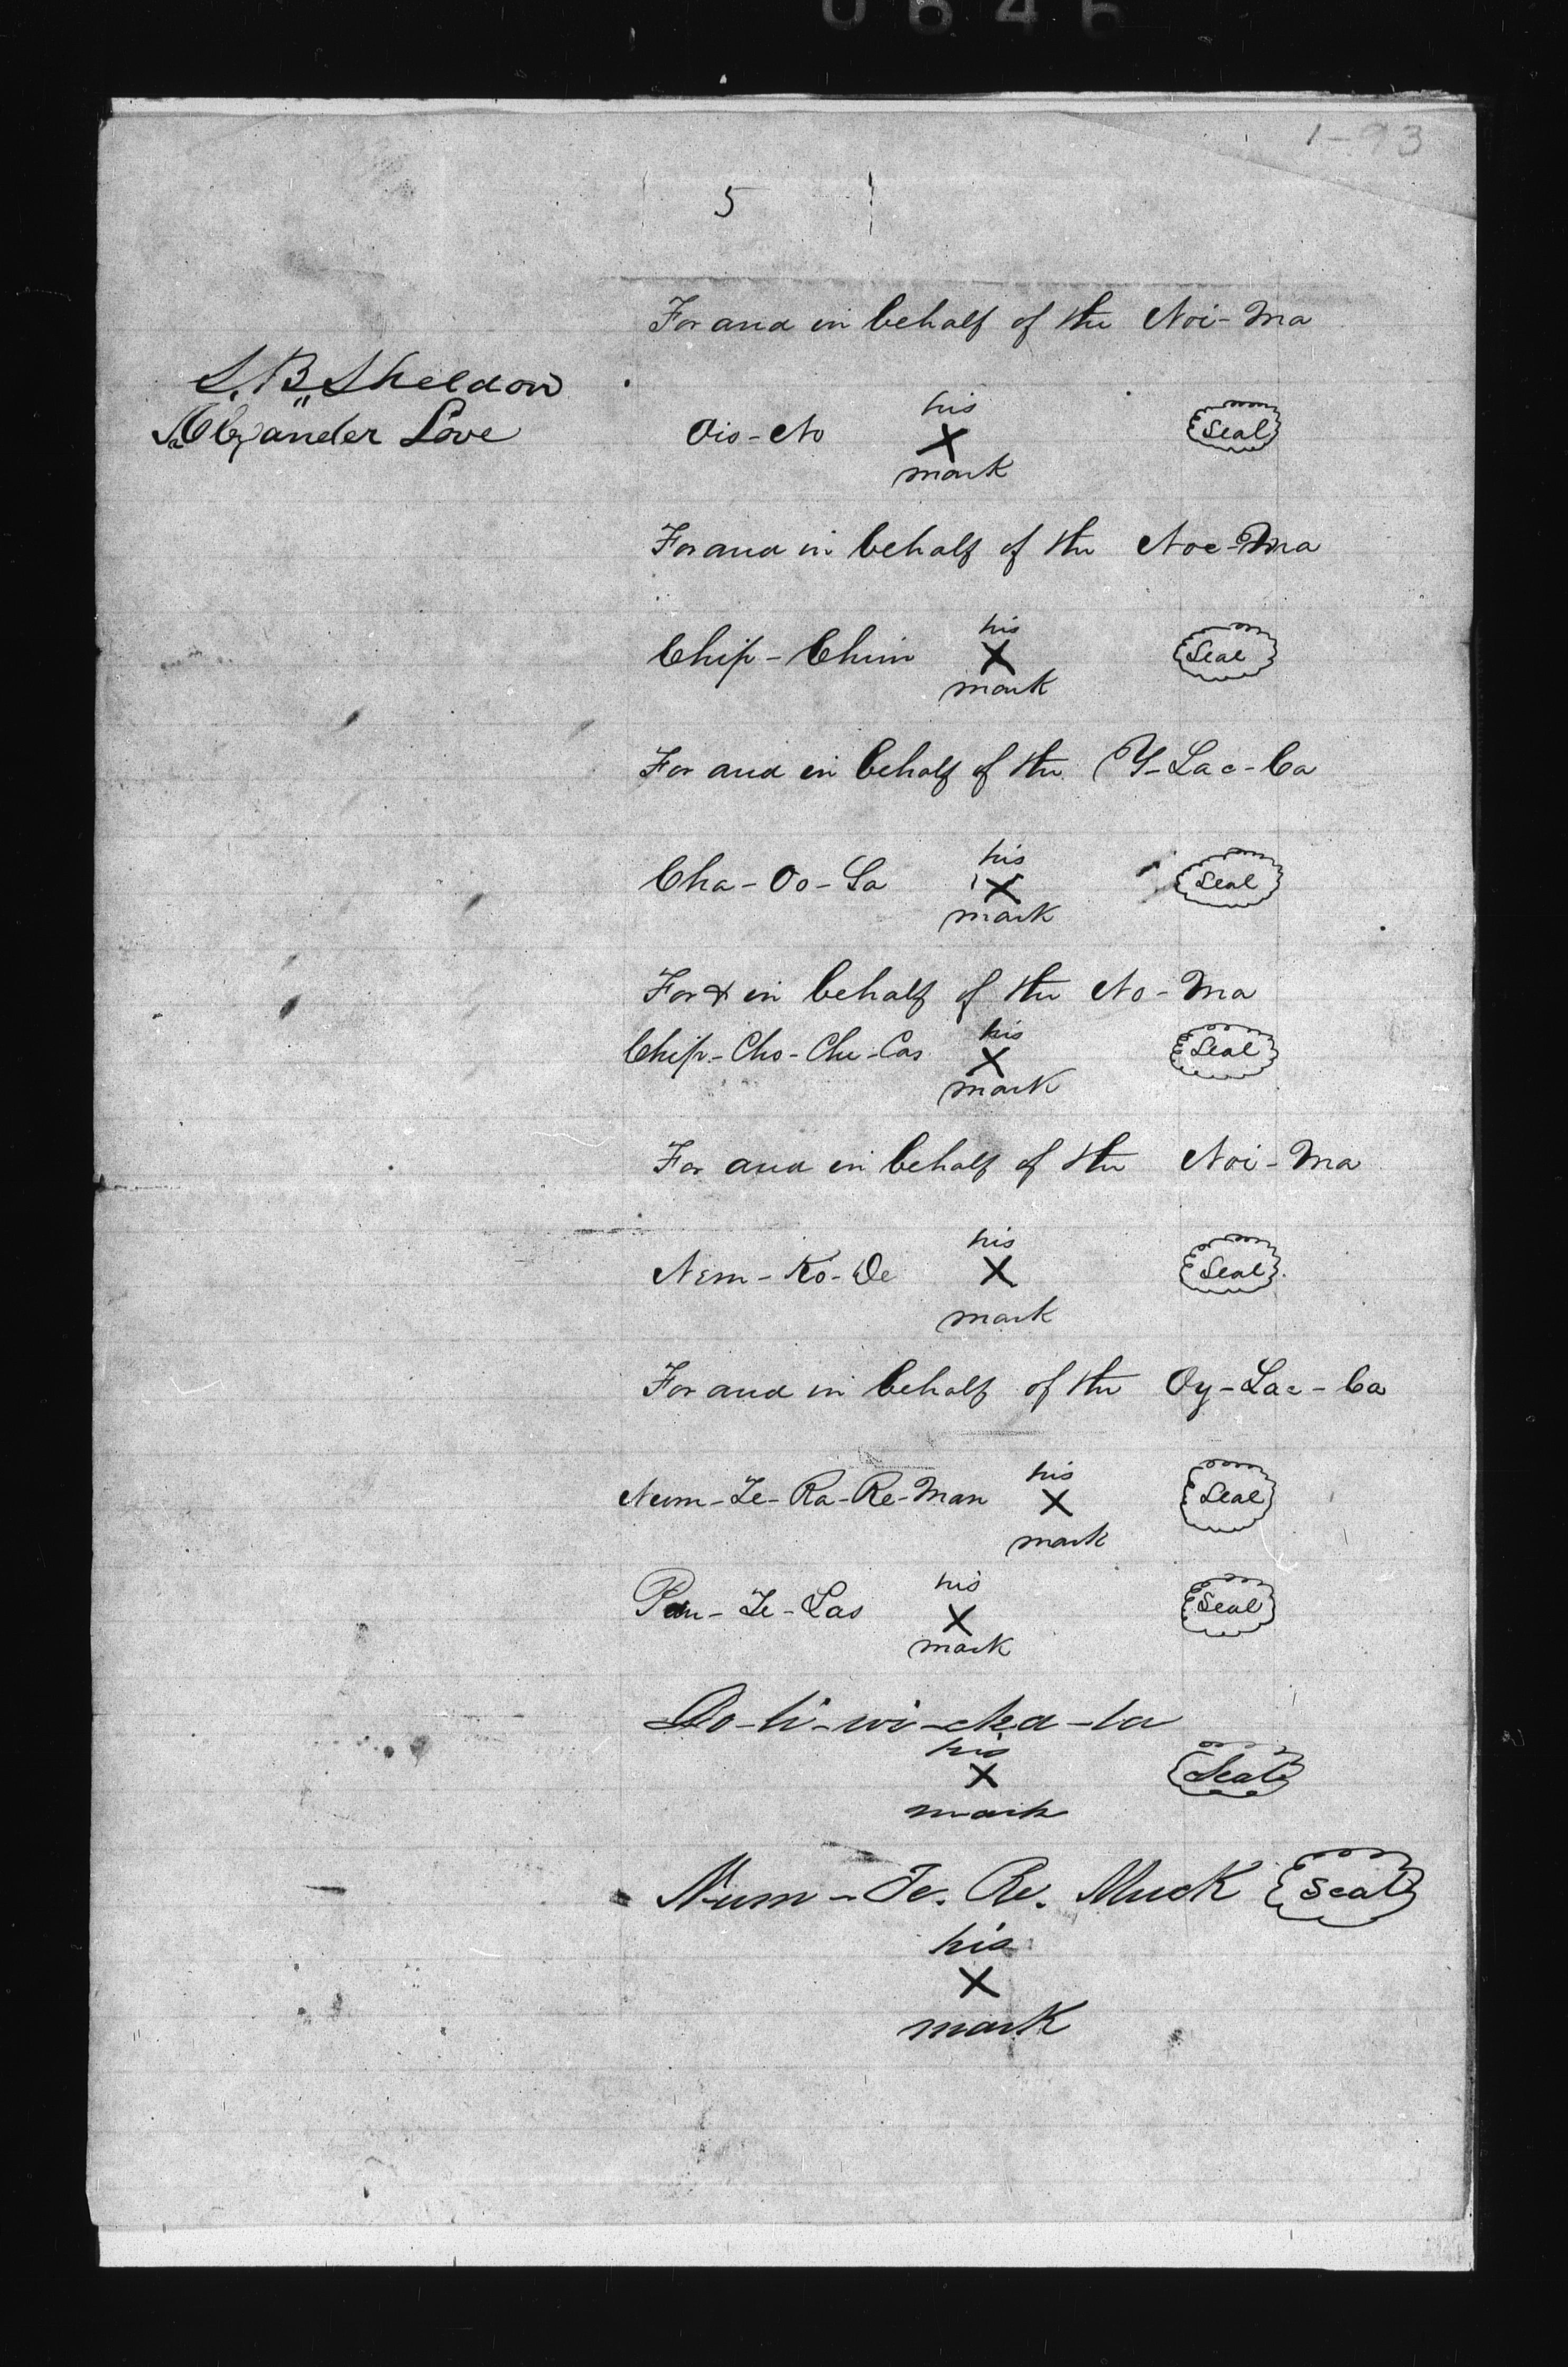 1-93
5
For and in behalf of the Noi-Ma
S. B. Sheldon
Alexander Love
Ois-No
his
X
mark
Seal
For and in behalf of the Noe-Ma
Chip-Chim
his
X
mark
Seal
For and in behalf of the Y-Lac-Ca
Cha-Oo-La
his
X
mark
Seal
For & in behalf of the No-Ma
Chip-Cho-Chu-Cas
his
X
mark
Seal
For and in behalf of the Noi-Ma
Nem-Ko-De
his
X
mark
Seal
For and in behalf of the Oy-Lac-Ca
Num-Te-Ra-Re-Man
his
X
mark
Seal
Te-Las
his
X
mark
Seal
his
X
mark
Seal
Num-Te. Re. Muck Seal
his
X
mark